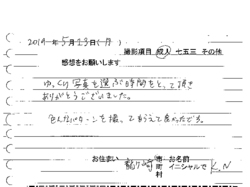 2019年5月23日(月)
撮影項目 成人 七五三 その他
感想をお願いします
ゆっくり写真を選ぶ時間をとって頂き
ありがとうございました。
色んなパターンを撮ってもらえて良かったです。
お住まい 龍ケ崎 市・町・村 お名前 イニシャルで K.N